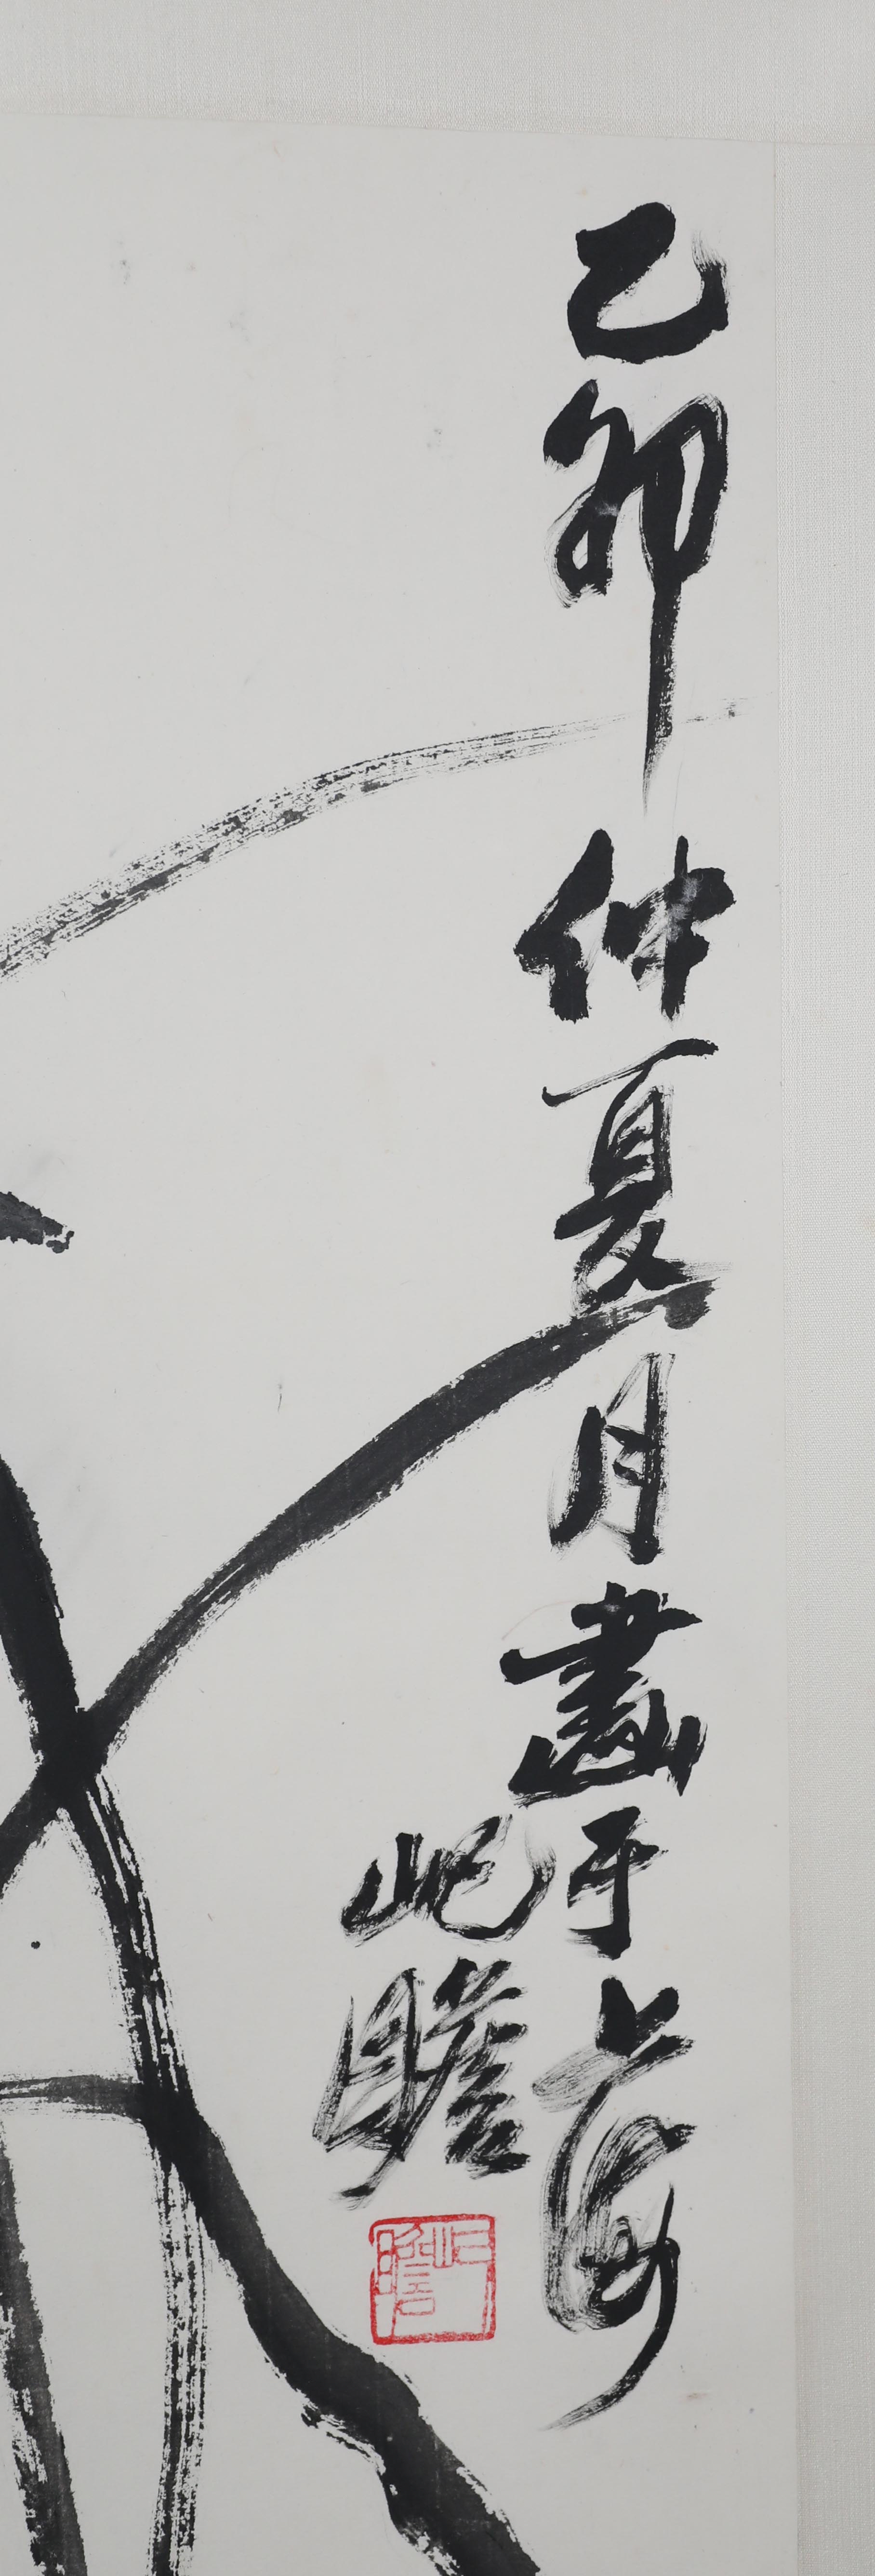 己卯仲夏月畫于上海
屺瞻
屺瞻